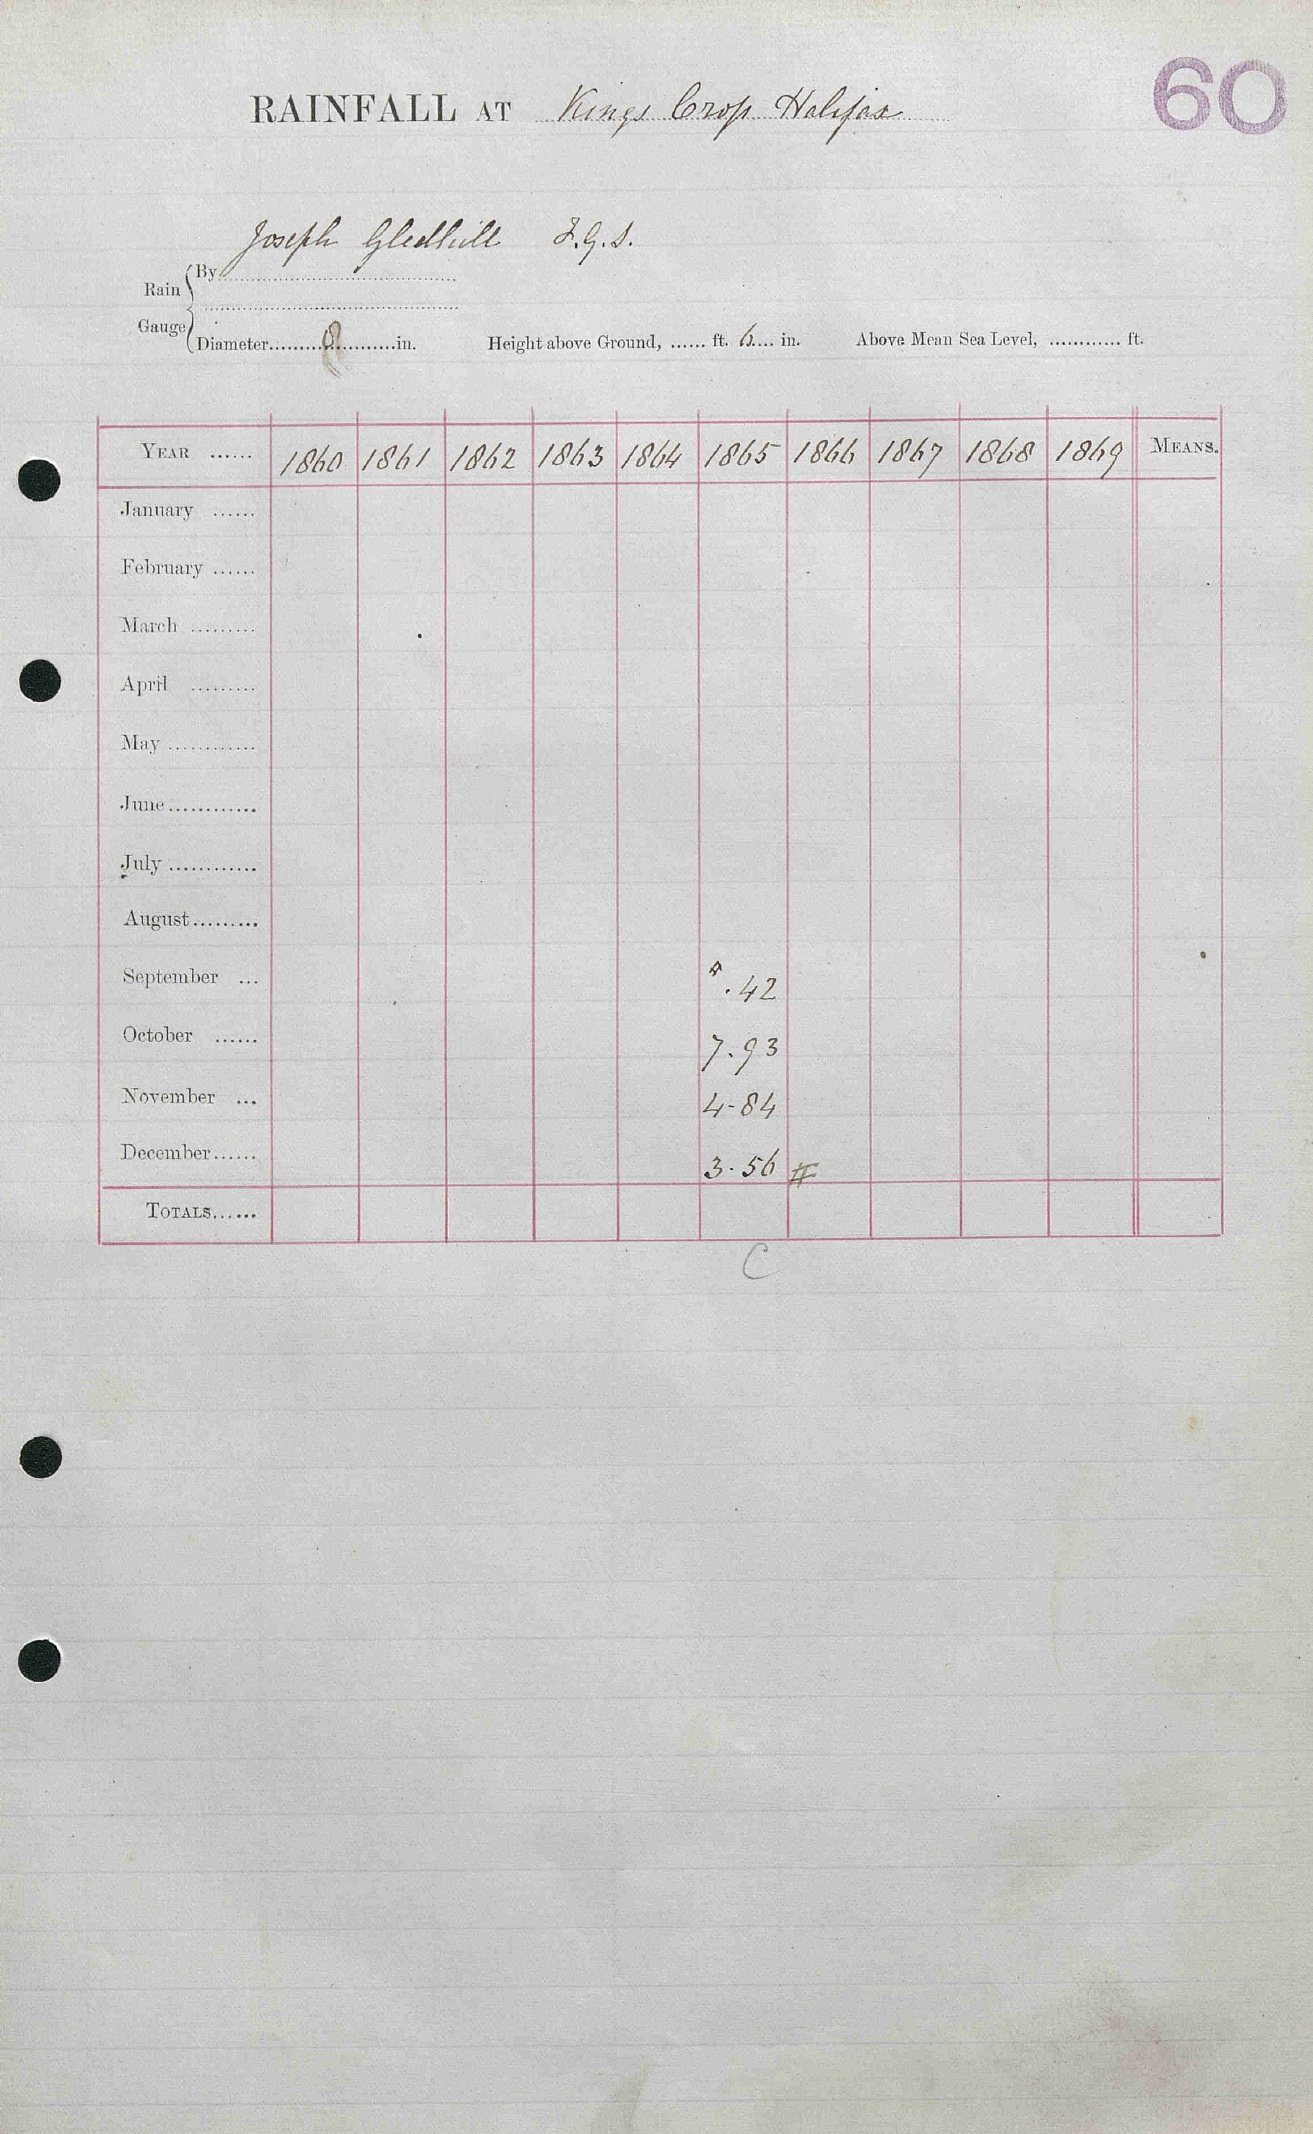 60
RAINFALL AT Kings Crop Halifax
Joseph Gledhill F.G.S.
Rain Gauge { By
Diameter 8 in. Height above Ground, ...... ft. 6 in. Above Mean Sea Level, ............ ft.
YEAR ...... 1860 1861 1862 1863 1864 1865 1866 1867 1868 1869 MEANS.
January ......
February ......
March .........
April .........
May ............
June ............
July ............
August .........
September ... .42
October ...... 7.93
November ... 4.84
December ...... 3.56 #
TOTALS ......
C